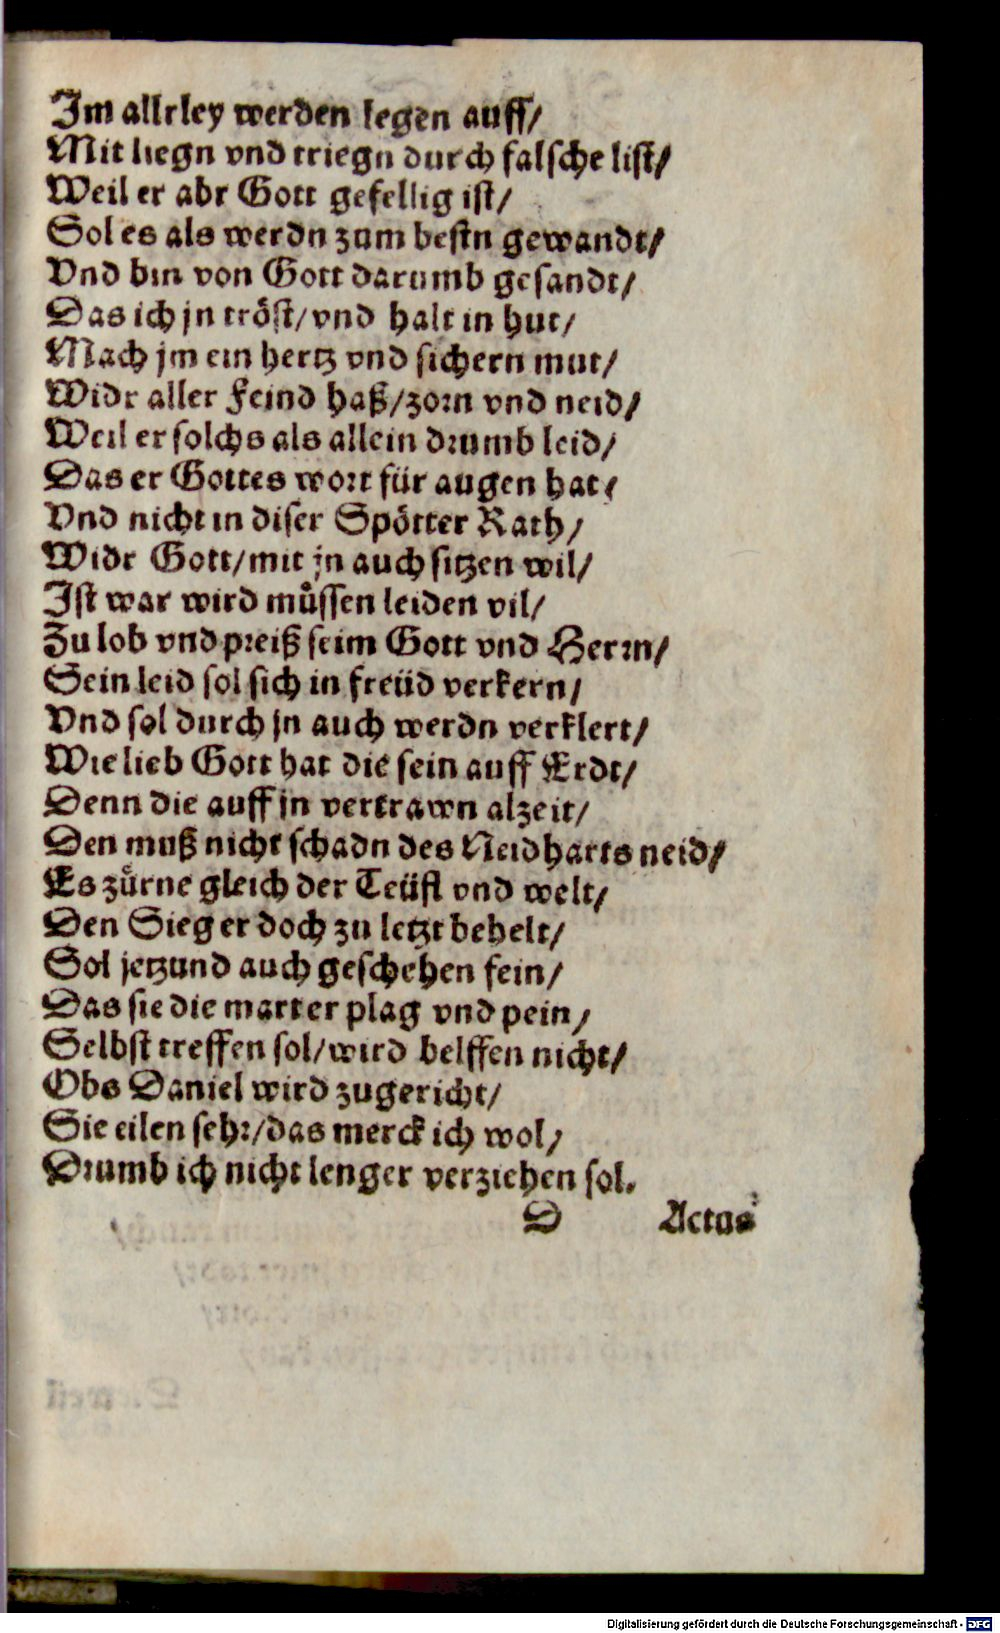 Im allrley werden legen auff/
Mit liegn vnd triegn durch falsche list/
Weil er abr Gott gefellig ist/
Sol es als werdn zum bestn gewandt/
Vnd bin von Gott darumb gesandt/
Das ich jn tröst/vnd halt in hut/
Mach jm ein hertz vnd sichern mut/
Widr aller Feind haß/zorn vnd neid/
Weil er solchs als allein drumb leid/
Das er Gottes wort für augen hat/
Vnd nicht in diser Spötter Rath/
Widr Gott/mit jn auch sitzen wil/
Ist war wird muͤssen leiden vil/
Zu lob vnd preiß seim Gott vnd Herrn/
Sein leid sol sich in freüd verkern/
Vnd sol durch jn auch werdn verklert/
Wie lieb Gott hat die sein auff Erdt/
Denn die auff jn vertrawn alzeit/
Den muß nicht schadn des Neidharts neid/
Es zuͤrne gleich der Teüfl vnd welt/
Den Sieg er doch zu letzt behelt/
Sol jetzund auch geschehen fein/
Das sie die marter plag vnd pein/
Selbst treffen sol/wird helffen nicht/
Obs Daniel wird zugericht/
Sie eilen sehr/das merck ich wol/
Drumb ich nicht lenger verziehen sol.
D Actus
Digitalisierung gefördert durch die Deutsche Forschungsgemeinschaft - DFG